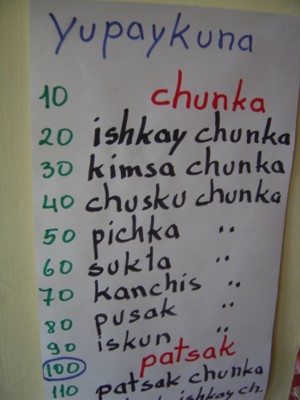 Yupaykuna
10 chunka
20 ishkay chunka
30 kimsa chunka
40 chusku chunka
50 pichka "
60 sukta "
70 kanchis "
80 pusak "
90 iskun "
100 patsak
110 patsak chunka
ishkay ch.